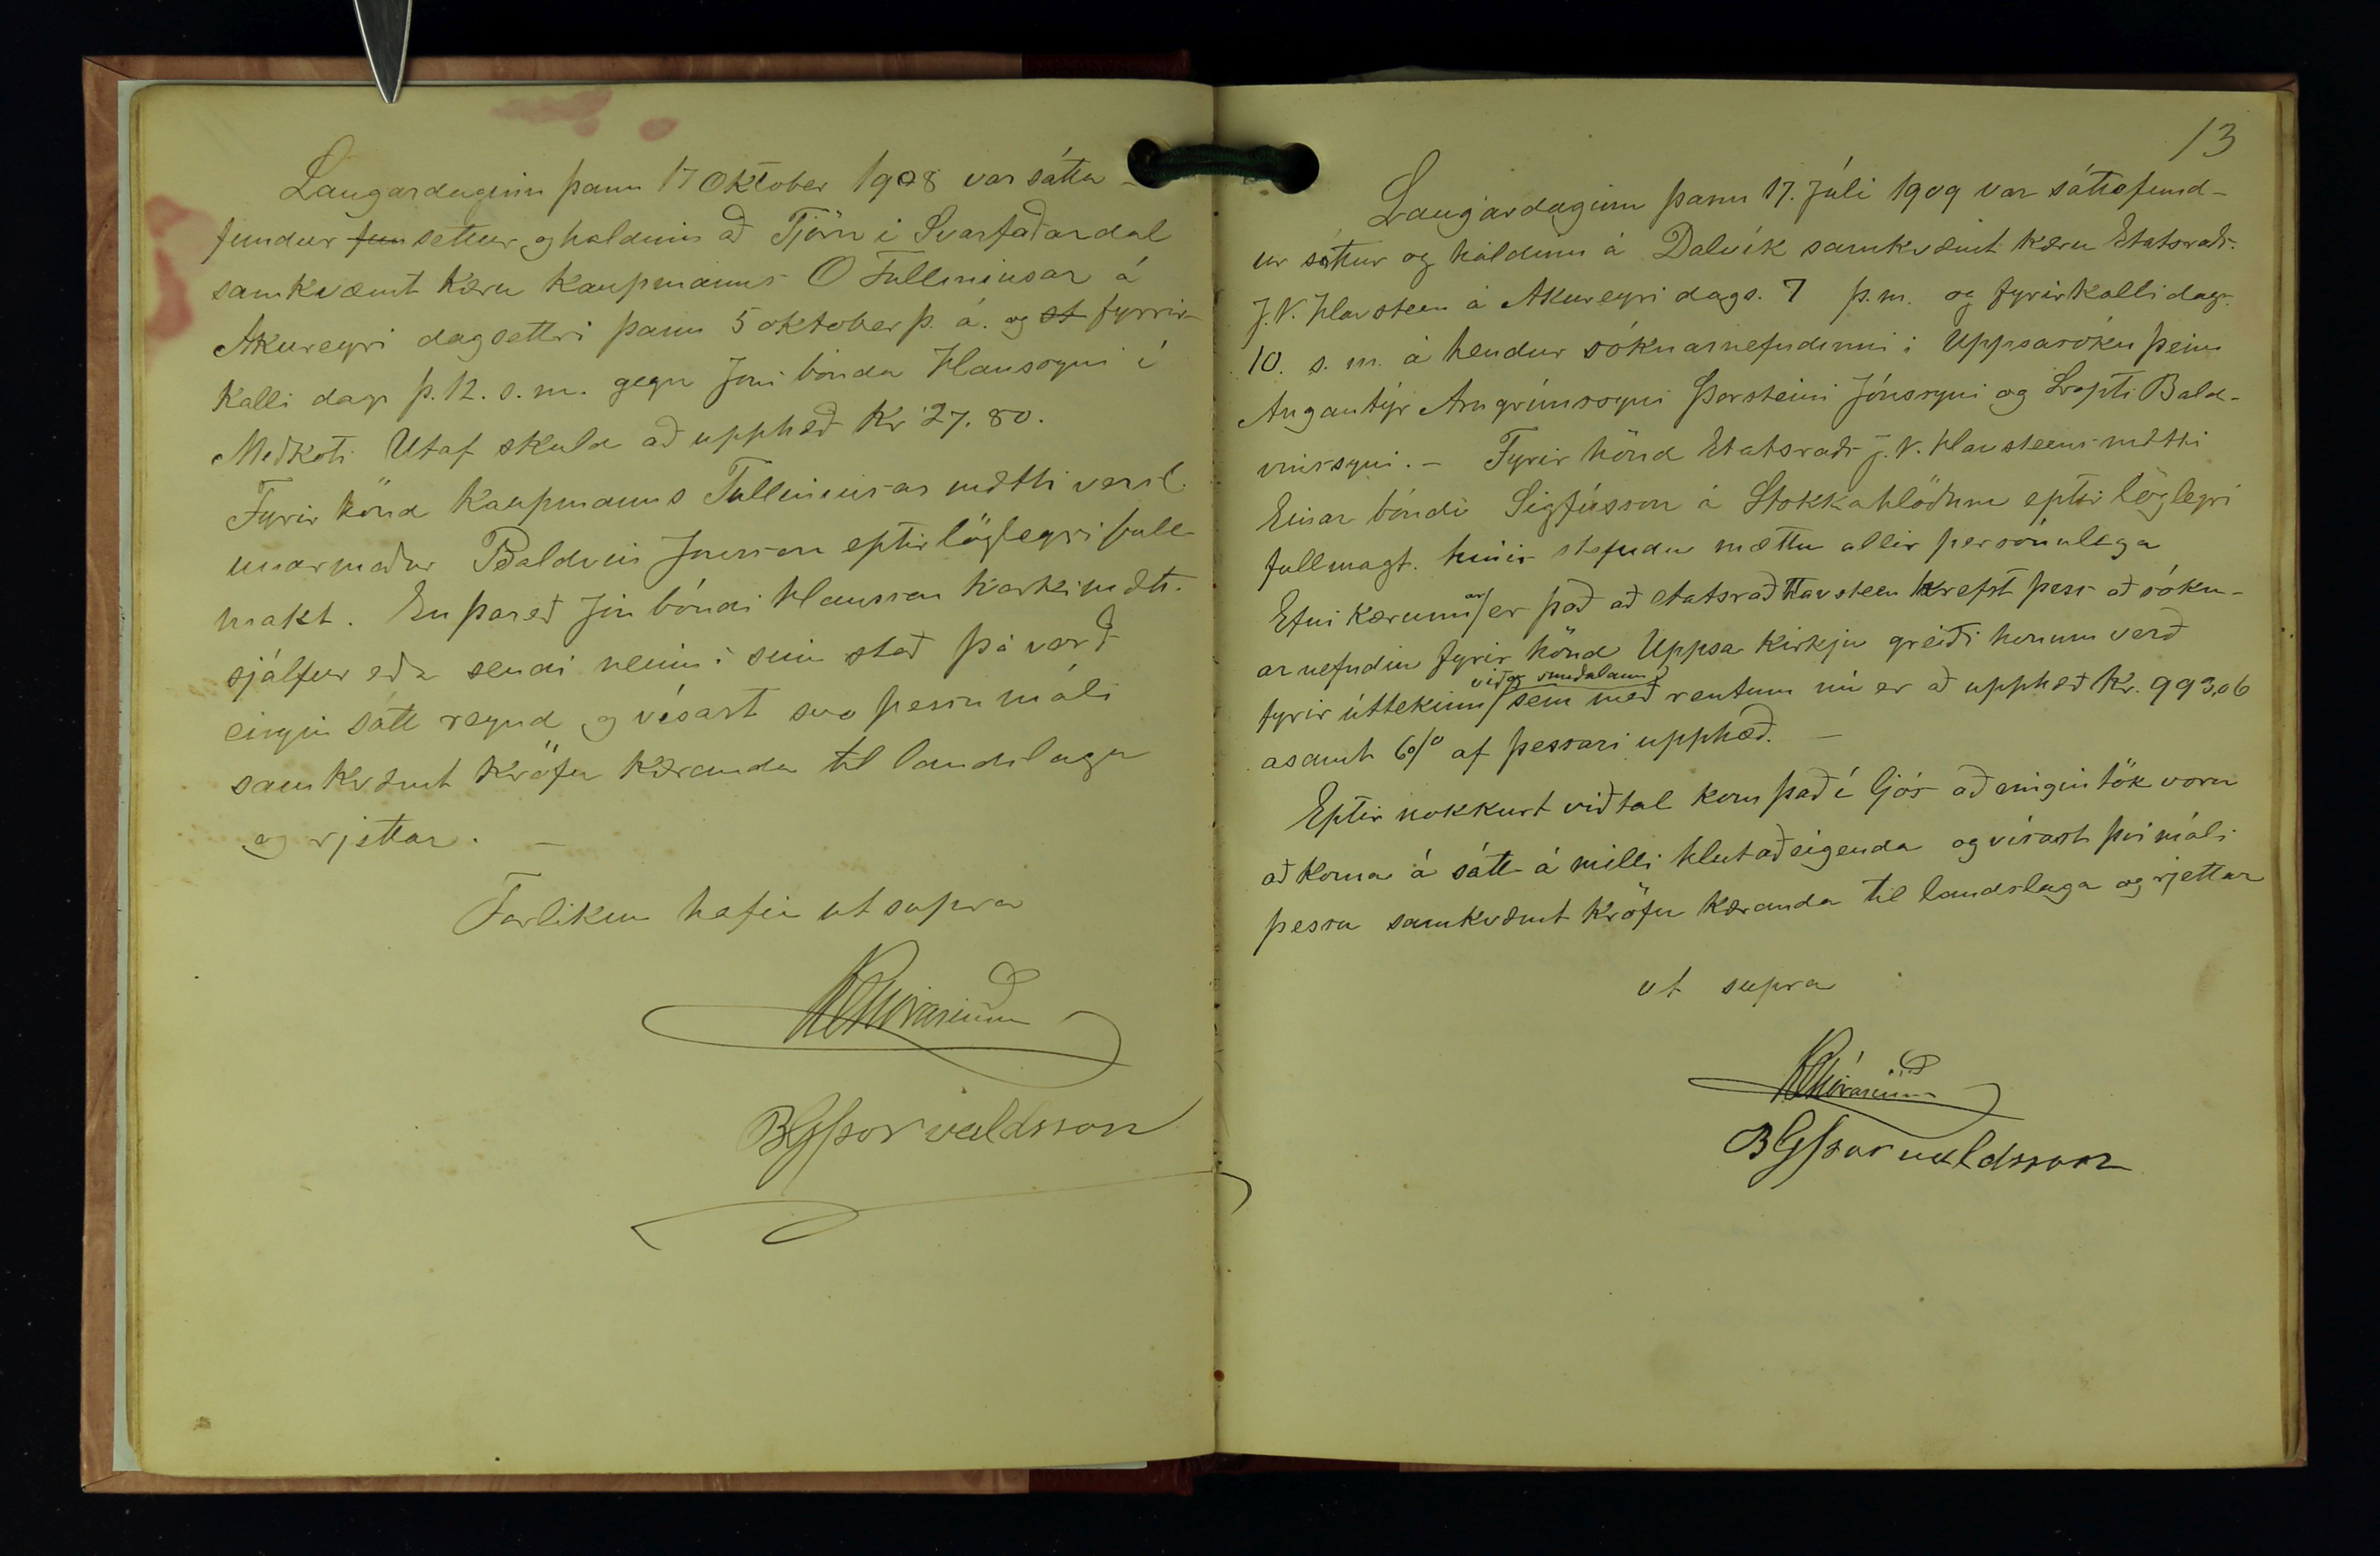 Laugardaginn þann 17 Oktober 1908 var sátta-
fundur fun settur og haldinn að Tjörn i Svarfaðardal
samkvæmt kæru kaupmanns O Tulliniusar á
Akureyri dagsettri þann 5 oktober þ. á. og st fyrrir-
kalli dags þ. 12. s. m. gegn Joni bónda Hanssyni í
Meðkoti Utaf skuld að upphæð Kr 27.80.
Fyrir hönd kaupmanns Tulliniusar mætti versl-
unarmaður Baldvin Jonsson eptir löglegri full-
makt. En þareð Jón bóndi Hansson hvorki mætti
sjálfur eða sendi neinn i sinn stað þá varð
eingin sátt reynd og vísast svo þessu máli
samkvæmt kröfu kæranda til landslaga
og rjettar. -
Forlikun hafin ut supra
K E Kiörarinn
B G Þorvaldsson
13
Laugardaginn þann 17. Júli 1909 var sáttafund-
ur settur og haldinn á Dalvík samkvæmt kæru Etatsraðs
J. V. Havsteen á Akureyri dags. 7 þ. m. og fyrirkalli dags.
10. s. m. á hendur sóknarnefndinni i Uppsasókn þeim
Angantýr Arngrímssyni Þorsteini Jónssyni og Lopti Bald-
vinssyni. - Fyrir hönd Etatsraðs J. V. Havsteens mætti
Einar bóndi Sigfússon á Stokkahlöðum eptir löglegri
fullmagt. hinir stefndu mættu allir persónulega
Efni kærunnar er það að etatsrað Havsteen krefst þess að sókn-
ar nefndin fyrir hönd Uppsa kirkju greiði honum verð
fyrir úttekinn við og smíðalaun sem með rentum nú er að upphæð Kr. 993,06
asamt 6% af þessari upphæð. -
Eptir nokkurt viðtal kom það í ljós að eingin tök voru
að koma á sátt á milli hlutaðeigenda og vísast því máli
þessu samkvæmt kröfu kæranda til landslaga og rjettar
ut supra
B G Þorvaldsson